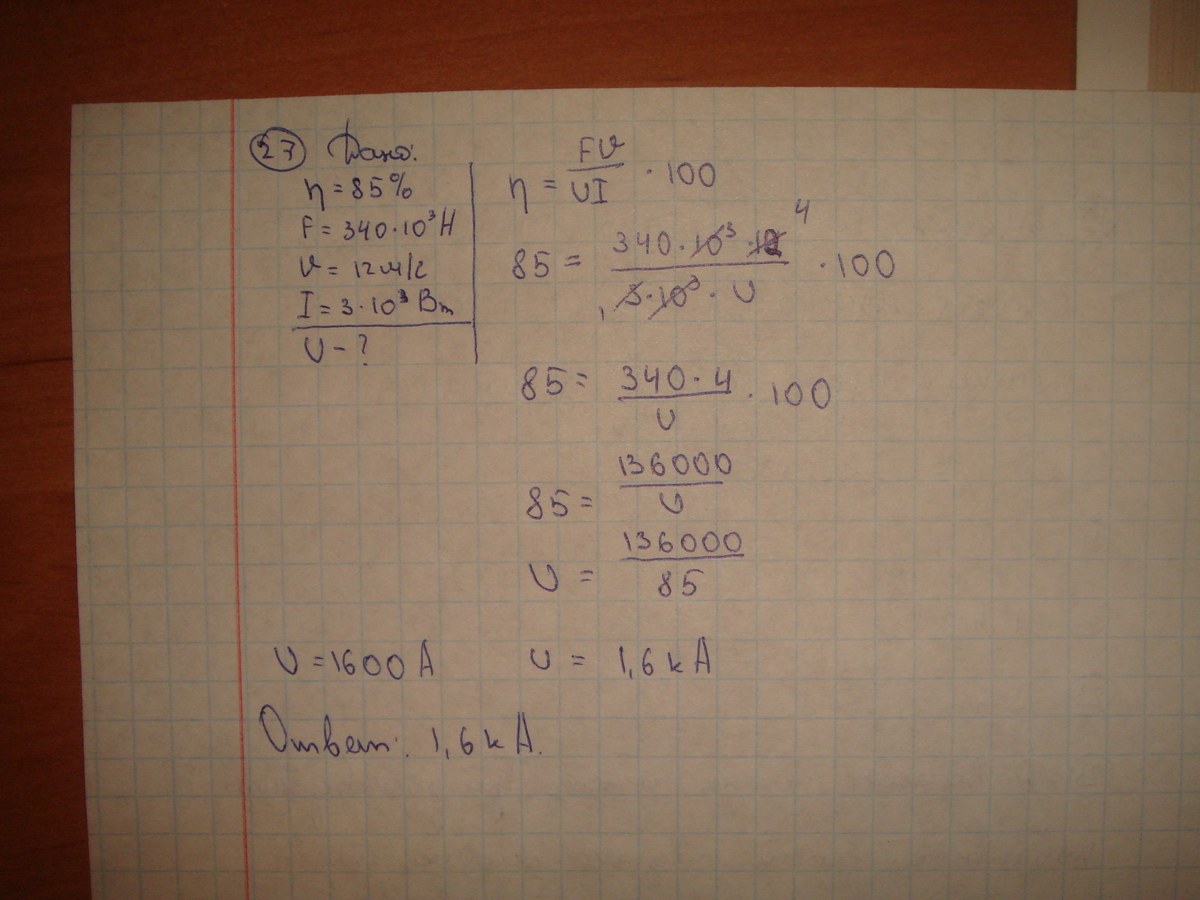 27 Дано:
η = 85%
F = 340·10³Н
υ = 12 м/с
I = 3·10³ Вт
U - ?
η = Fυ/UI · 100
85 = 340·10³·12/3·10³·U · 100
4
1
85 = 340·4/U · 100
85 = 136000/U
U = 136000/85
U = 1600 А
U = 1,6 кА
Ответ: 1,6 кА.